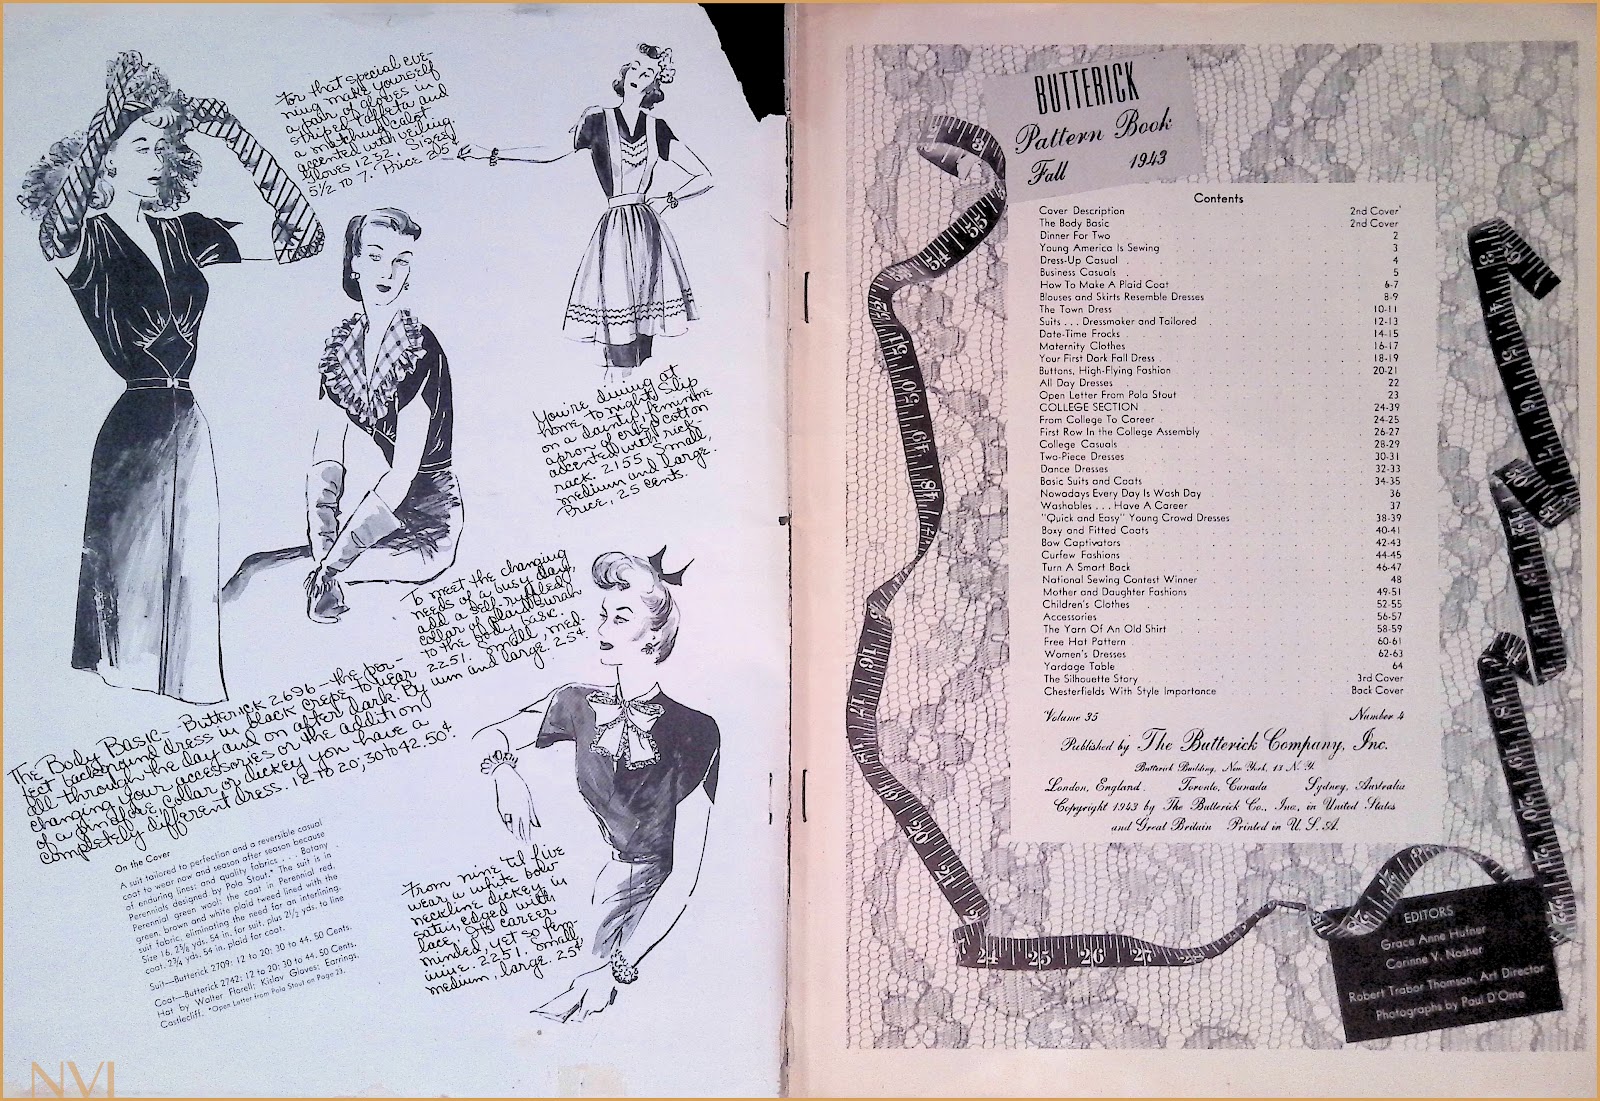 For that special eve-
ning make yourself
a pair of gloves in
striped taffeta and
a matching calot
accented with veiling.
Gloves 1232, Sizes
5½ to 7. Price 25¢
You're dining at
home to-night? Slip
on a dainty, feminine
apron of crisp cotton
accented with rick-
rack. 2155. Small,
medium and large.
Price, 25 cents.
To meet the changing
needs of a busy day,
add a self-ruffled
collar of plaid surah
to the body basic.
2251. Small, med-
ium and large. 25¢
The Body Basic — Butterick 2696 — the per-
fect background dress in black crepe to wear
all through the day and on after dark. By
changing your accessories or the addition
of a pinafore, collar or dickey you have a
completely different dress. 12 to 20, 30 to 42. 50¢.
On the Cover
A suit tailored to perfection and a reversible casual
coat to wear now and season after season because
of enduring lines; and quality fabrics . . . Botany
Perennials designed by Pola Stout.* The suit is in
Perennial green wool; the coat in Perennial red,
green, brown and white plaid tweed lined with the
suit fabric, eliminating the need for an interlining.
Size 16, 2⅝ yds. 54 in. for suit, plus 2½ yds. to line
coat. 2¾ yds. 54 in. plaid for coat.
Suit—Butterick 2709: 12 to 20; 30 to 44. 50 Cents.
Coat—Butterick 2742: 12 to 20; 30 to 44. 50 Cents.
Hat by Walter Florell; Kislav Gloves; Earrings,
Castlecliff. *Open Letter from Pola Stout on Page 23.
From nine 'til five
wear a white bow
neckline dickey in
satin, edged with
lace. It's career
minded, yet so fem-
inine. 2251. Small,
medium, large. 25¢
NVL
BUTTERICK
Pattern Book
Fall 1943
Contents
Cover Description 2nd Cover
The Body Basic 2nd Cover
Dinner For Two 2
Young America Is Sewing 3
Dress-Up Casual 4
Business Casuals 5
How To Make A Plaid Coat 6-7
Blouses and Skirts Resemble Dresses 8-9
The Town Dress 10-11
Suits . . . Dressmaker and Tailored 12-13
Date-Time Frocks 14-15
Maternity Clothes 16-17
Your First Dark Fall Dress 18-19
Buttons, High-Flying Fashion 20-21
All Day Dresses 22
Open Letter From Pola Stout 23
COLLEGE SECTION 24-39
From College To Career 24-25
First Row In the College Assembly 26-27
College Casuals 28-29
Two-Piece Dresses 30-31
Dance Dresses 32-33
Basic Suits and Coats 34-35
Nowadays Every Day Is Wash Day 36
Washables . . . Have A Career 37
"Quick and Easy" Young Crowd Dresses 38-39
Boxy and Fitted Coats 40-41
Bow Captivators 42-43
Curfew Fashions 44-45
Turn A Smart Back 46-47
National Sewing Contest Winner 48
Mother and Daughter Fashions 49-51
Children's Clothes 52-55
Accessories 56-57
The Yarn Of An Old Shirt 58-59
Free Hat Pattern 60-61
Women's Dresses 62-63
Yardage Table 64
The Silhouette Story 3rd Cover
Chesterfields With Style Importance Back Cover
Volume 35 Number 4
Published by The Butterick Company, Inc.
Butterick Building, New York, 13 N. Y.
London, England. Toronto, Canada Sydney, Australia
Copyright 1943 by The Butterick Co., Inc., in United States
and Great Britain Printed in U. S. A.
24 25 26 27
EDITORS
Grace Anne Hufner
Corinne V. Nosher
Robert Trabor Thomson, Art Director
Photographs by Paul D'Ome